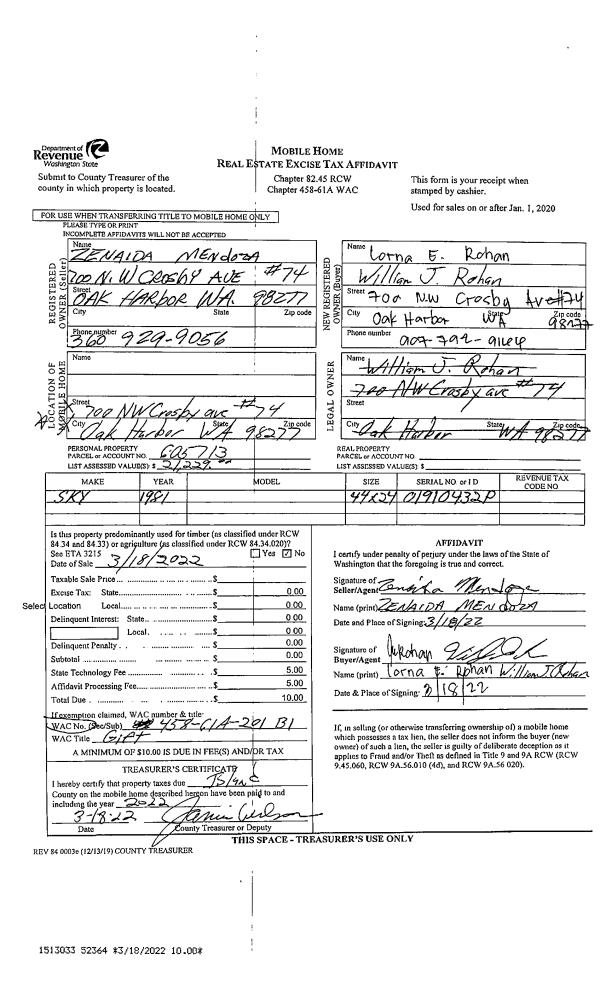 Department of
Revenue
Washington State
Submit to County Treasurer of the
county in which property is located.
MOBILE HOME
REAL ESTATE EXCISE TAX AFFIDAVIT
Chapter 82.45 RCW
Chapter 458-61A WAC
This form is your receipt when
stamped by cashier.
Used for sales on or after Jan. 1, 2020
FOR USE WHEN TRANSFERRING TITLE TO MOBILE HOME ONLY
PLEASE TYPE OR PRINT
INCOMPLETE AFFIDAVITS WILL NOT BE ACCEPTED
REGISTERED
OWNER (Seller)
Name
ZENAIDA MENDOZA
700 N.W CROSBY AVE #74
Street
OAK HARBOR WA. 98277
City State Zip code
Phone number
360 929-9056
NEW REGISTERED
OWNER (Buyer)
Name
Lorna E. Rohan
William J. Rohan
Street 700 NW Crosby Ave #74
City State Zip code
Oak Harbor WA 98277
Phone number 907-792-9164
LOCATION OF
MOBILE HOME
Name
Street 700 NW Crosby ave #74
City State Zip code
Oak Harbor WA 98277
LEGAL OWNER
Name
William J. Rohan
700 NW Crosby ave #74
Street
City State Zip code
Oak Harbor WA 98277
PERSONAL PROPERTY
PARCEL or ACCOUNT NO. 605713
LIST ASSESSED VALUE(S) $ 21,229.00
REAL PROPERTY
PARCEL or ACCOUNT NO.
LIST ASSESSED VALUE(S) $
MAKE YEAR MODEL SIZE SERIAL NO or I D REVENUE TAX CODE NO
SKY 1981 44x24 01910432P
Is this property predominantly used for timber (as classified under RCW
84.34 and 84.33) or agriculture (as classified under RCW 84.34.020)?
See ETA 3215 Yes No
Date of Sale 3/18/2022
Taxable Sale Price $
Excise Tax: State $ 0.00
Select Location Local $ 0.00
Delinquent Interest: State $ 0.00
Local $ 0.00
Delinquent Penalty $ 0.00
Subtotal $ 0.00
State Technology Fee $ 5.00
Affidavit Processing Fee $ 5.00
Total Due $ 10.00
If exemption claimed, WAC number & title:
WAC No. (Sec/Sub) 458-61A-201 B1
WAC Title Gift
A MINIMUM OF $10.00 IS DUE IN FEE(S) AND/OR TAX
AFFIDAVIT
I certify under penalty of perjury under the laws of the State of
Washington that the foregoing is true and correct.
Signature of
Seller/Agent Zenaida Mendoza
Name (print) ZENAIDA MENDOZA
Date and Place of Signing: 3/18/22
Signature of
Buyer/Agent
Name (print) Lorna E. Rohan William J. Rohan
Date & Place of Signing: 3/18/22
If, in selling (or otherwise transferring ownership of) a mobile home
which possesses a tax lien, the seller does not inform the buyer (new
owner) of such a lien, the seller is guilty of deliberate deception as it
applies to Fraud and/or Theft as defined in Title 9 and 9A RCW (RCW
9.45.060, RCW 9A.56.010 (4d), and RCW 9A.56 020).
TREASURER'S CERTIFICATE
I hereby certify that property taxes due Island
County on the mobile home described hereon have been paid to and
including the year 2022
3-18-22
Date County Treasurer or Deputy
THIS SPACE - TREASURER'S USE ONLY
REV 84 0003e (12/13/19) COUNTY TREASURER
1513033 52364 *3/18/2022 10.00*